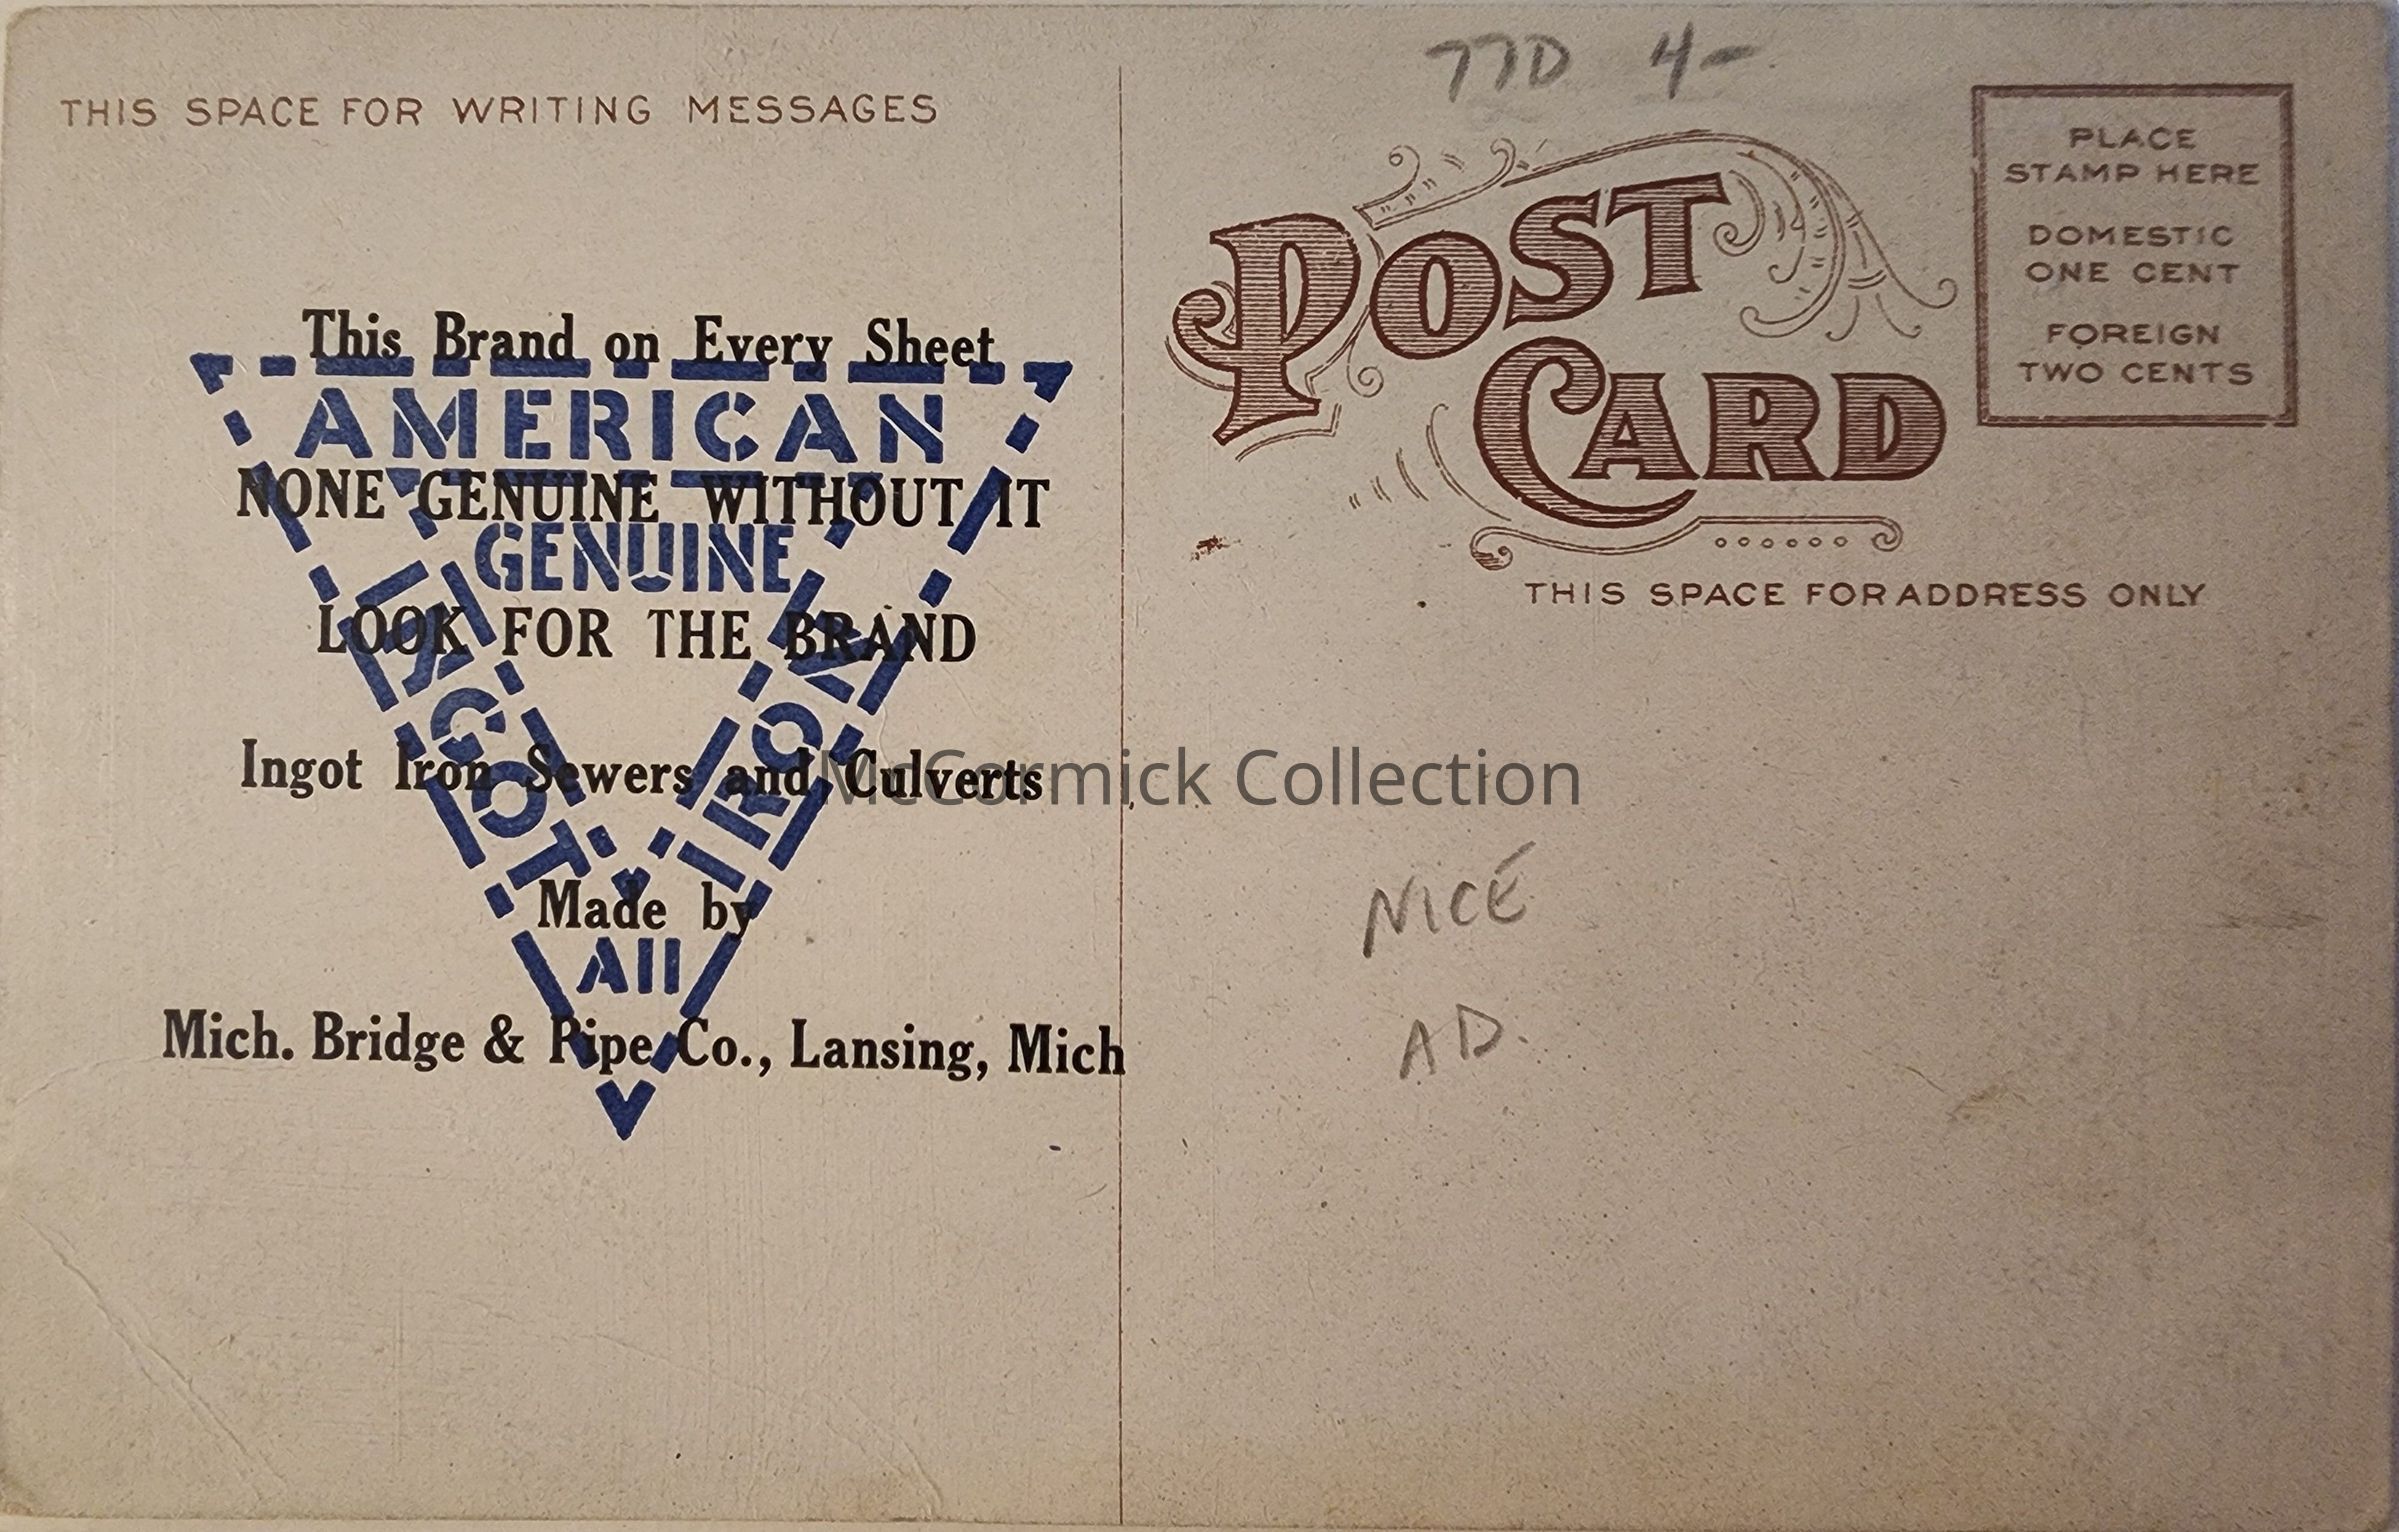 77D 4-
THIS SPACE FOR WRITING MESSAGES
This Brand on Every Sheet
AMERICAN
NONE GENUINE WITHOUT IT
GENUINE
LOOK FOR THE BRAND
INGOT
IRON
Ingot Iron Sewers and Culverts
Made by
All
Mich. Bridge & Pipe Co., Lansing, Mich
POST
CARD
PLACE
STAMP HERE
DOMESTIC
ONE CENT
FOREIGN
TWO CENTS
THIS SPACE FOR ADDRESS ONLY
McCormick Collection
NICE
AD.